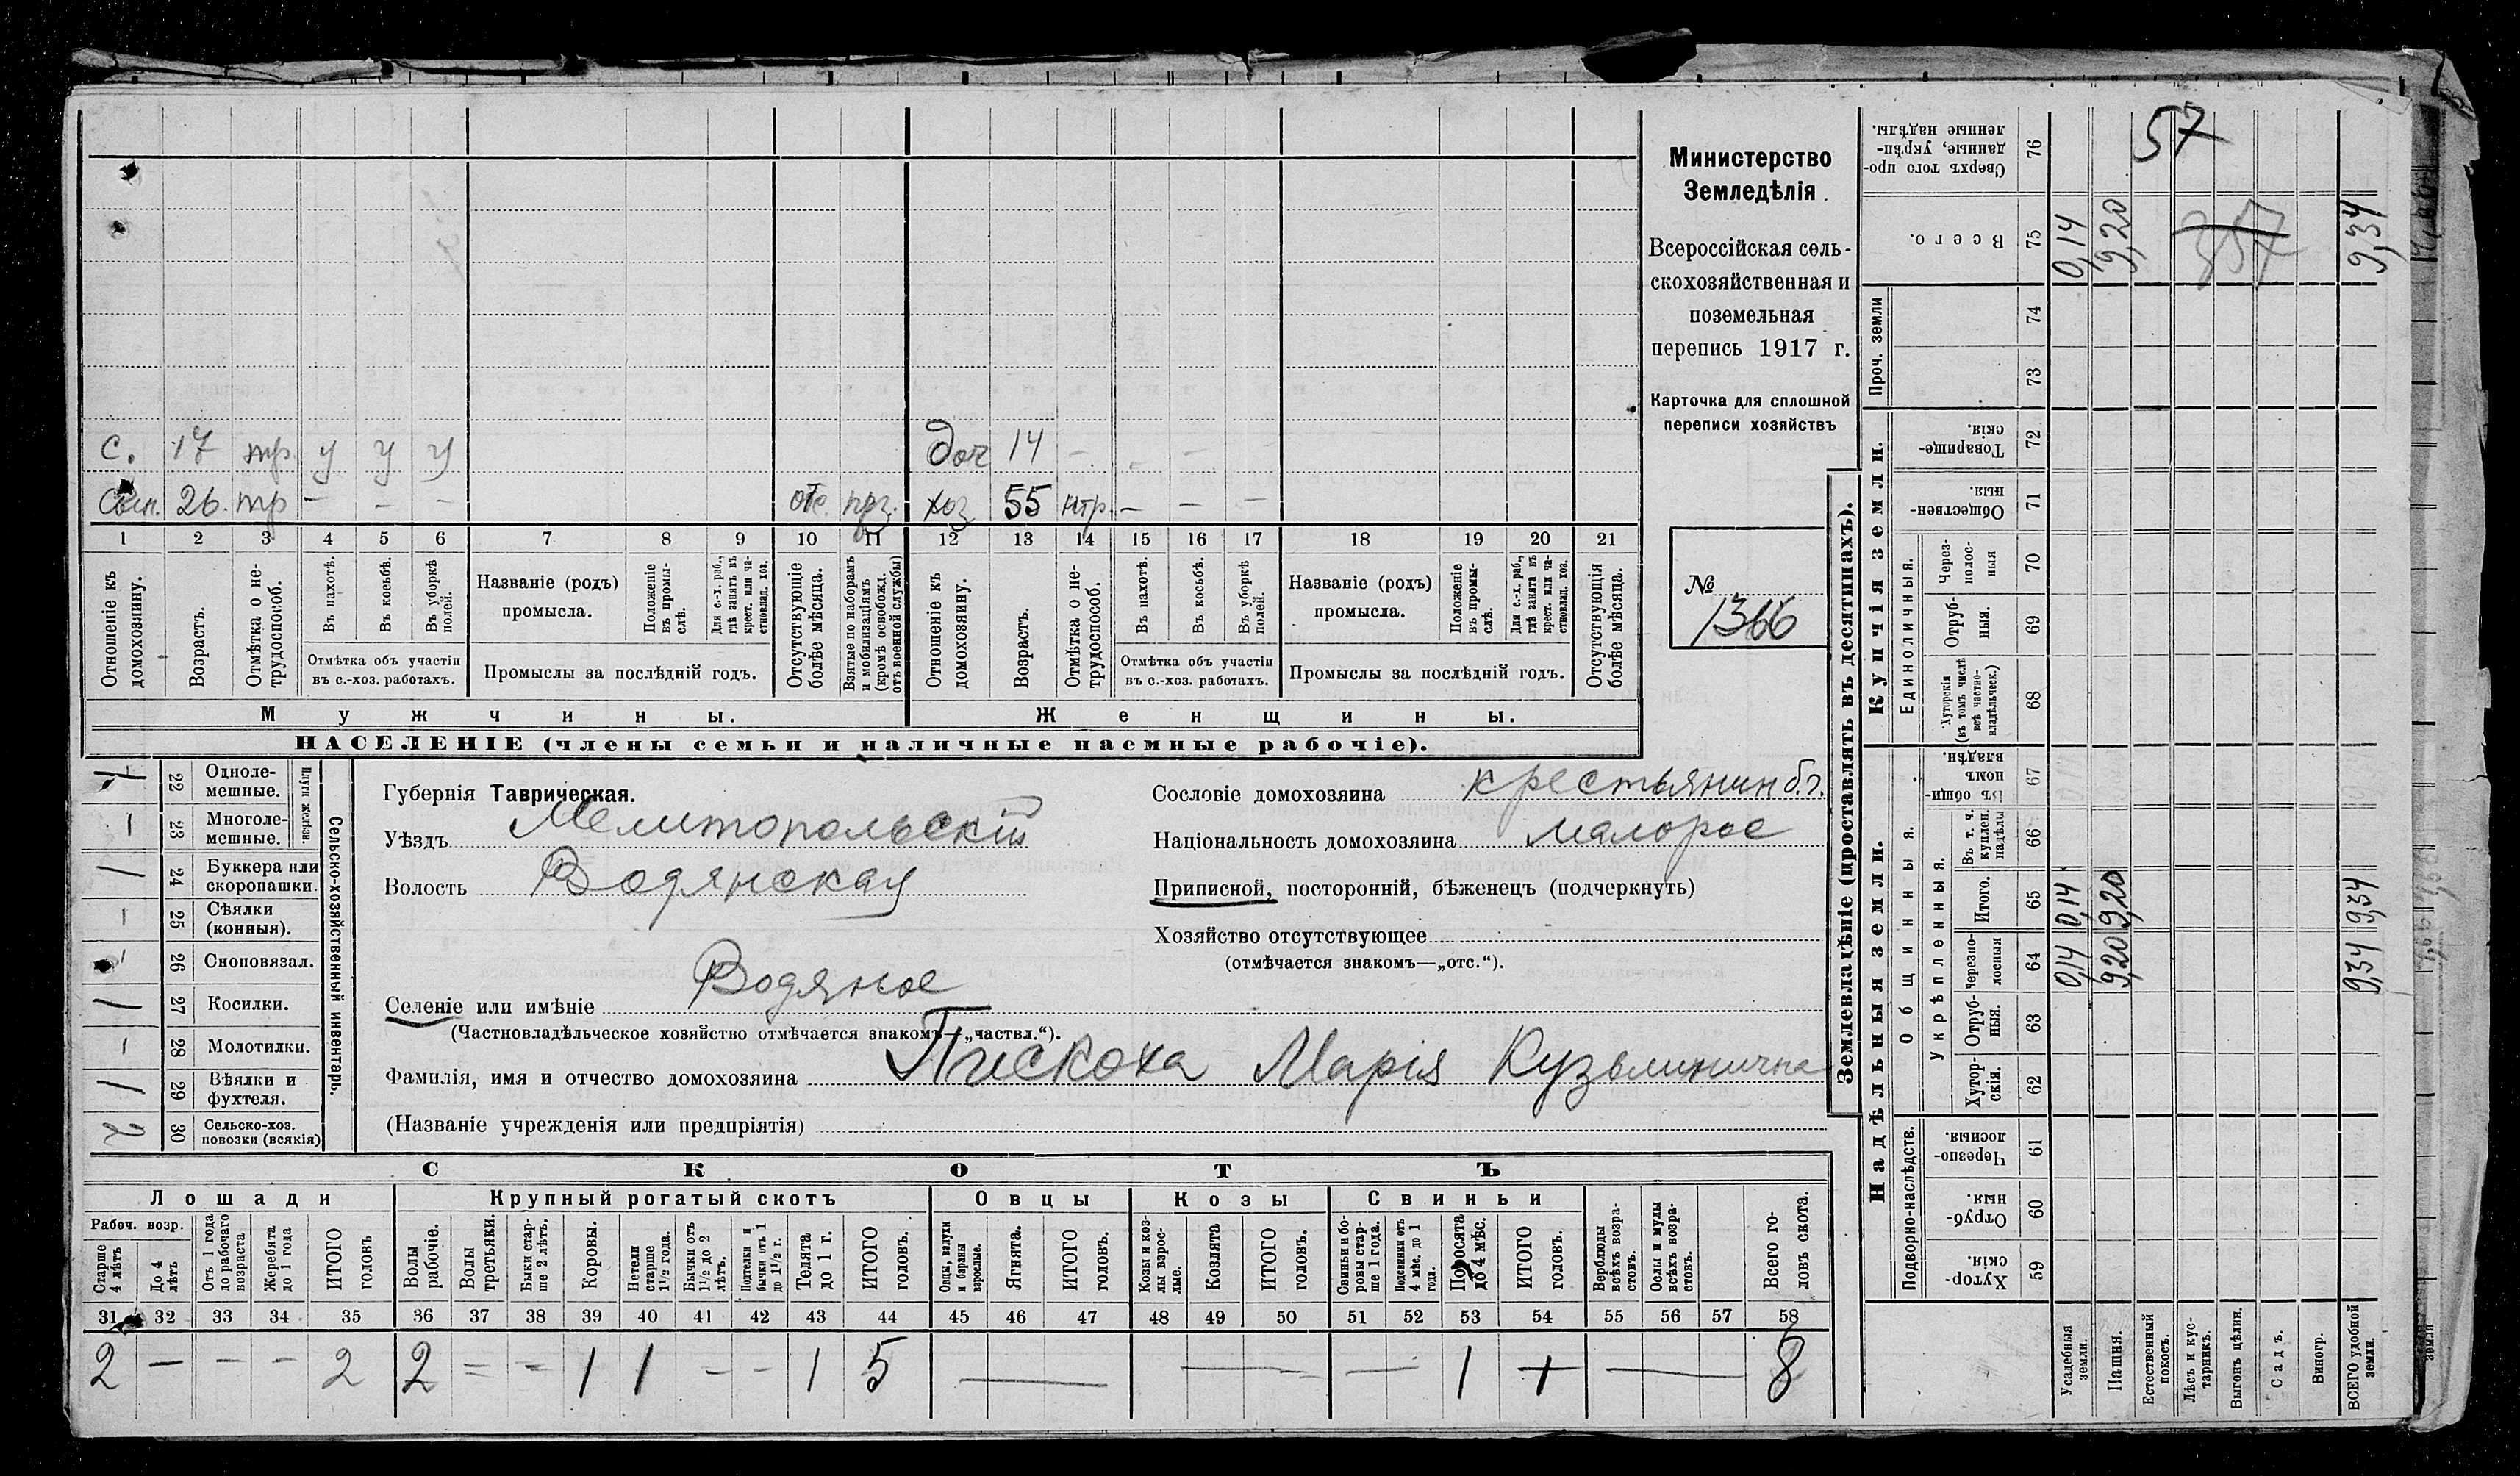 57
357
С. 17 тр. у у у
доч 14 - - -
Сын. 26. тр - - - отс. прз.
хоз 55 нтр. - - -
1 2 3 4 5 6 7 8 9 10 11 12 13 14 15 16 17 18 19 20 21
Отношеніе къ домохозяину.
Возрастъ.
Отмѣтка о не-трудоспособ.
Въ пахотѣ.
Въ косьбѣ.
Въ уборкѣ полей.
Отмѣтка объ участіи
въ с.-хоз. работахъ.
Названіе (родъ)
промысла.
Положеніе въ промы-слѣ.
Для с.-х. раб., гдѣ занятъ въ крест. или ча-стновлад. хоз.
Промыслы за послѣдній годъ.
Отсутствующіе болѣе мѣсяца.
Взятые по наборамъ и мобилизаціямъ (кромѣ освобожд. отъ военной службы)
Отношеніе къ домохозяину.
Возрастъ.
Отмѣтка о не-трудоспособ.
Въ пахотѣ.
Въ косьбѣ.
Въ уборкѣ полей.
Отмѣтка объ участіи
въ с.-хоз. работахъ.
Названіе (родъ)
промысла.
Положеніе въ промы-слѣ.
Для с.-х. раб., гдѣ занята въ крест. или ча-стновлад. хоз.
Промыслы за послѣдній годъ.
Отсутствующія болѣе мѣсяца.
Мужчины.
Женщины.
НАСЕЛЕНІЕ (члены семьи и наличные наемные рабочіе).
Министерство
Земледѣлія.
Всероссійская сель-
скохозяйственная и
поземельная
перепись 1917 г.
Карточка для сплошной
переписи хозяйствъ
№
1366
Сельско-хозяйственный инвентарь.
Плуги желѣзн.
1 22 Одноле-мешные.
— 23 Многоле-мешные.
1 24 Буккера или скоропашки.
— 25 Сѣялки (конныя).
26 Сноповязал.
1 27 Косилки.
— 28 Молотилки.
1 29 Вѣялки и фухтеля.
2 30 Сельско-хоз. повозки (всякія)
Губернія Таврическая.
Уѣздъ Мелитопольскій
Волость Водянская
Селеніе или имѣніе Водяное
(Частновладѣльческое хозяйство отмѣчается знакомъ—„частвл.“).
Сословіе домохозяина крестьянин б.г.
Національность домохозяина малорос
Приписной, посторонній, бѣженецъ (подчеркнуть)
Хозяйство отсутствующее
(отмѣчается знакомъ—„отс.“).
Фамилія, имя и отчество домохозяина Пискоха Марія Кузьминична
(Названіе учрежденія или предпріятія)
СКОТЪ
Лошади
Крупный рогатый скотъ
Овцы
Козы
Свиньи
Рабоч. возр.
Старше 4 лѣтъ
До 4 лѣтъ
Отъ 1 года до рабочаго возраста
Жеребята до 1 года
ИТОГО головъ
Волы рабочіе.
Волы третьяки.
Быки стар-ше 2 лѣтъ.
Коровы.
Нетели старше 1½ года.
Бычки отъ 1½ до 2 лѣтъ.
Подтелки и бычки отъ 1 до 1½ г.
Телята до 1 г.
ИТОГО головъ.
Овцы, валухи и бараны взрослые.
Ягнята.
ИТОГО головъ.
Козы и коз-лы взрос-лые.
Козлята
ИТОГО головъ.
Свиньи и бо-ровы стар-ше 1 года.
Подсвинки отъ 4 мѣс. до 1 года.
Поросята до 4 мѣс.
ИТОГО головъ.
Верблюды всѣхъ возра-стовъ.
Ослы и мулы всѣхъ возра-стовъ.
Всего го-ловъ скота.
31 32 33 34 35 36 37 38 39 40 41 42 43 44 45 46 47 48 49 50 51 52 53 54 55 56 57 58
2 — - - 2 2 = - 1 1 - - 1 5 — — — 1 + — 8
Землевладѣніе (проставлять въ десятинахъ).
Надѣльныя земли.
Купчія земли.
Проч. земли
Подворно-наслѣдств.
Общинныя.
Укрѣпленныя.
Единоличныя.
Сверхъ того про-данные, укрѣп-ленные надѣлы. 76
Всего. 75 0,14 9,20 9,34
74
73
Товарище-скія. 72
Обществен-ныя. 71
Через-полос-ныя 70
Отруб-ныя. 69
Хуторскія (въ томъ числѣ всѣ частно-владѣльческ.) 68
Въ общин-номъ владѣн. 67
Въ т. ч. куплен. надѣлы 66
Итого. 65 0,14 9,20 9,34
Черезпо-лосныя 64 0,14 9,20 9,34
Отруб-ныя. 63
Хутор-скія. 62
Черезпо-лосныя. 61
Отруб-ныя. 60
Хутор-скія. 59
Усадебныя земли.
Пашня.
Естественный покосъ.
Лѣсъ и кус-тарникъ.
Выгонъ цѣлин.
Садъ.
Виногр.
ВСЕГО удобной земли.